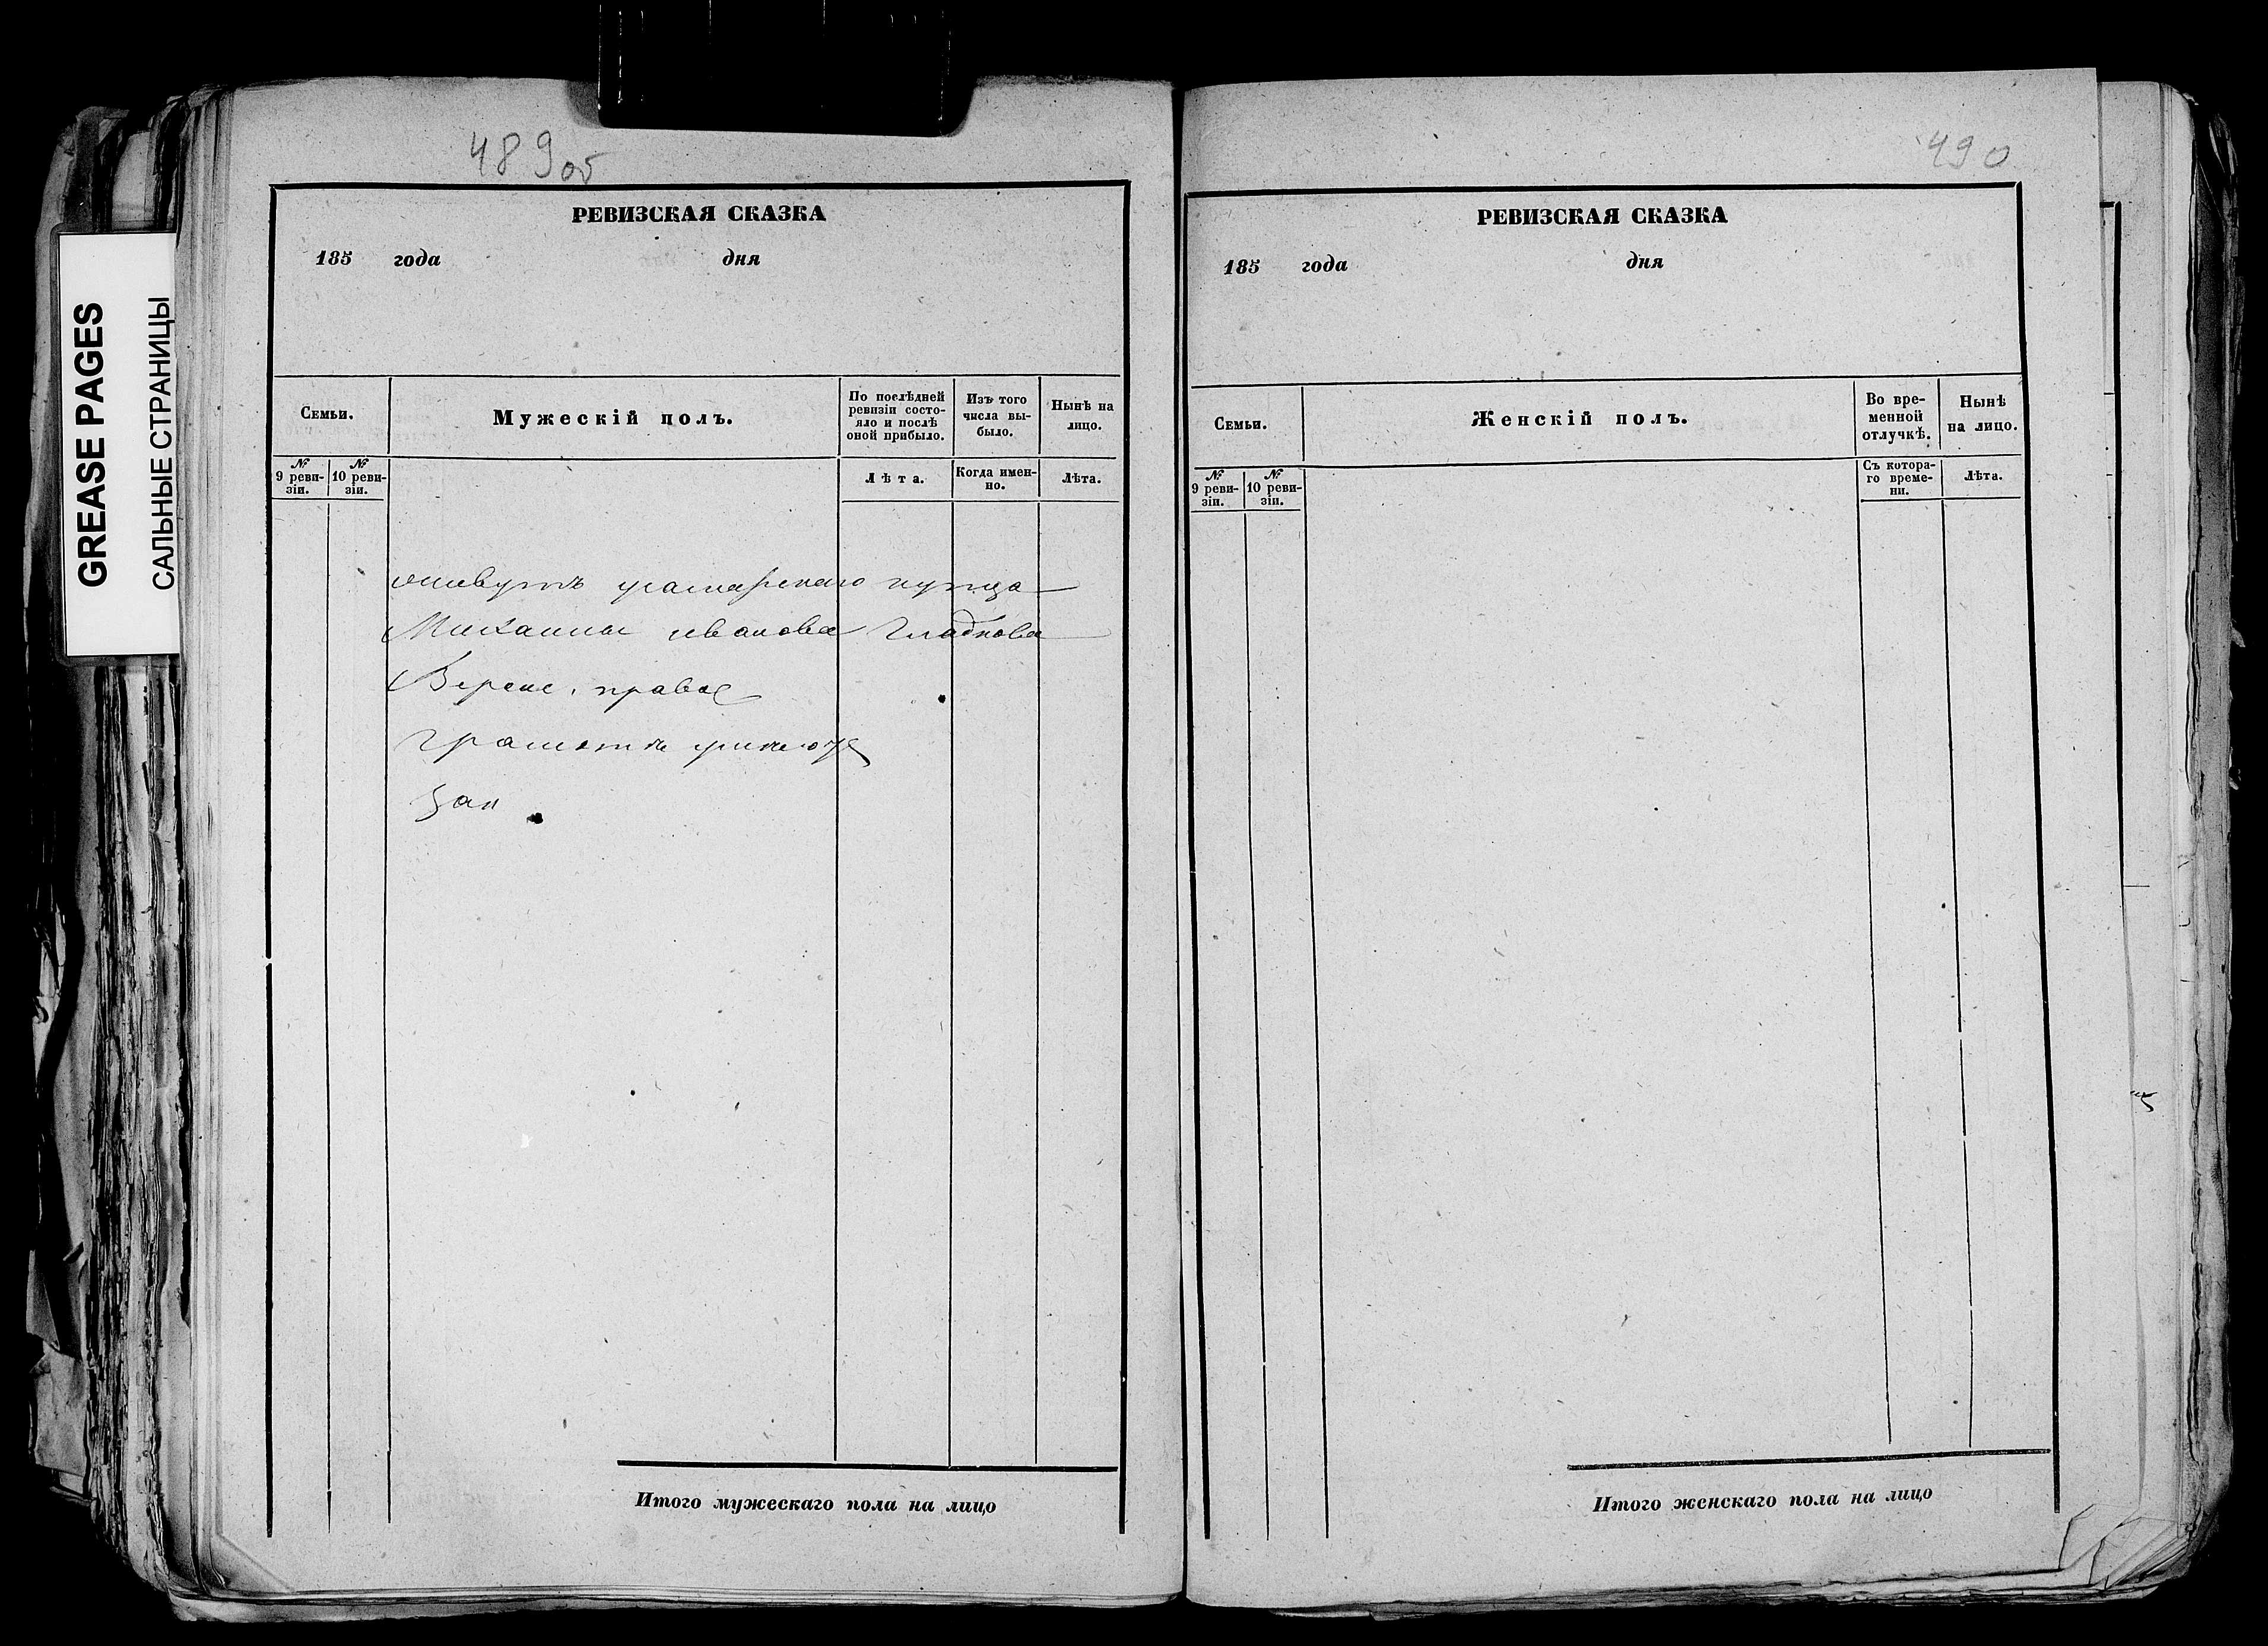 GREASE PAGES
САЛЬНЫЕ СТРАНИЦЫ
489об
РЕВИЗСКАЯ СКАЗКА
185 года дня
Семьи.
Мужескій полъ.
По послѣдней ревизіи состояло и послѣ оной прибыло.
Изъ того числа выбыло.
Нынѣ на лицо.
№ 9 ревизіи.
№ 10 ревизіи.
Лѣта.
Когда именно.
Лѣта.
купца
Михаила иванова Гладкова
права
Итого мужескаго пола на лицо
490
РЕВИЗСКАЯ СКАЗКА
185 года дня
Семьи.
Женскій полъ.
Во временной отлучкѣ.
Нынѣ на лицо.
№ 9 ревизіи.
№ 10 ревизіи.
Съ котораго времени.
Лѣта.
Итого женскаго пола на лицо